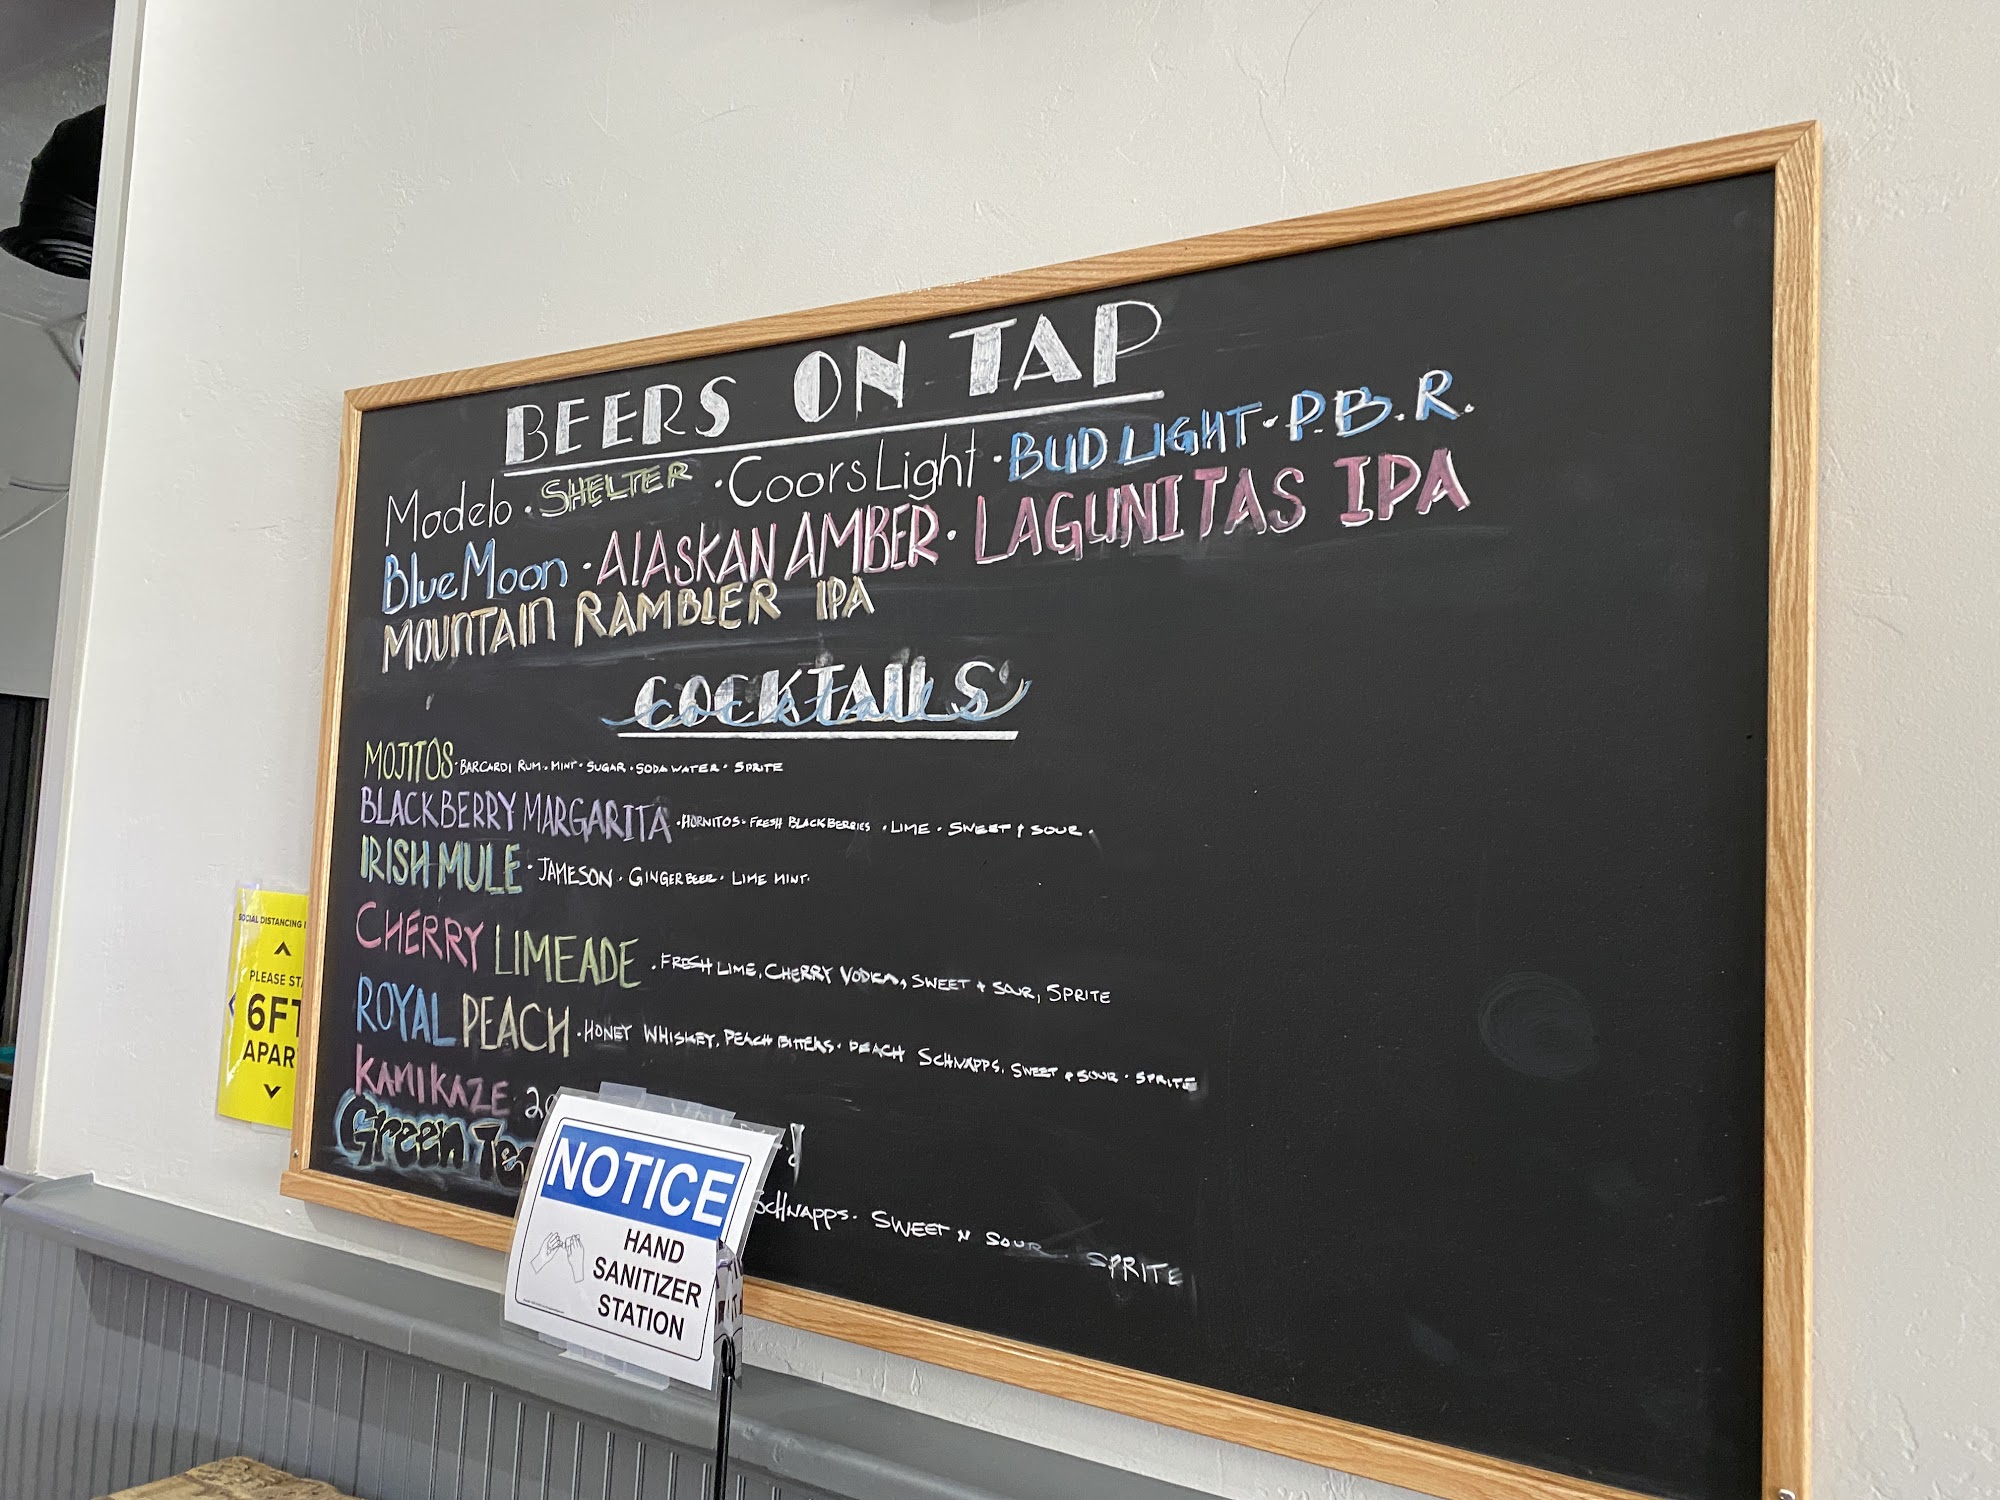 BEERS ON TAP
Modelo · SHELTER · Coors Light · BUD LIGHT · P.B.R.
Blue Moon · ALASKAN AMBER · LAGUNITAS IPA
MOUNTAIN RAMBLER IPA
COCKTAILS
cocktails
MOJITOS · BARCARDI RUM · MINT · SUGAR · SODA WATER · SPRITE
BLACKBERRY MARGARITA · HORNITOS · FRESH BLACKBERRIES · LIME · SWEET & SOUR ·
IRISH MULE · JAMESON · GINGER BEER · LIME MINT ·
CHERRY LIMEADE · FRESH LIME, CHERRY VODKA, SWEET & SOUR, SPRITE
ROYAL PEACH · HONEY WHISKEY, PEACH BITTERS · PEACH SCHNAPPS, SWEET & SOUR · SPRITE
KAMIKAZE
Green
SCHNAPPS · SWEET N SOUR · SPRITE
NOTICE
HAND
SANITIZER
STATION
SOCIAL DISTANCING
PLEASE
6FT
APAR